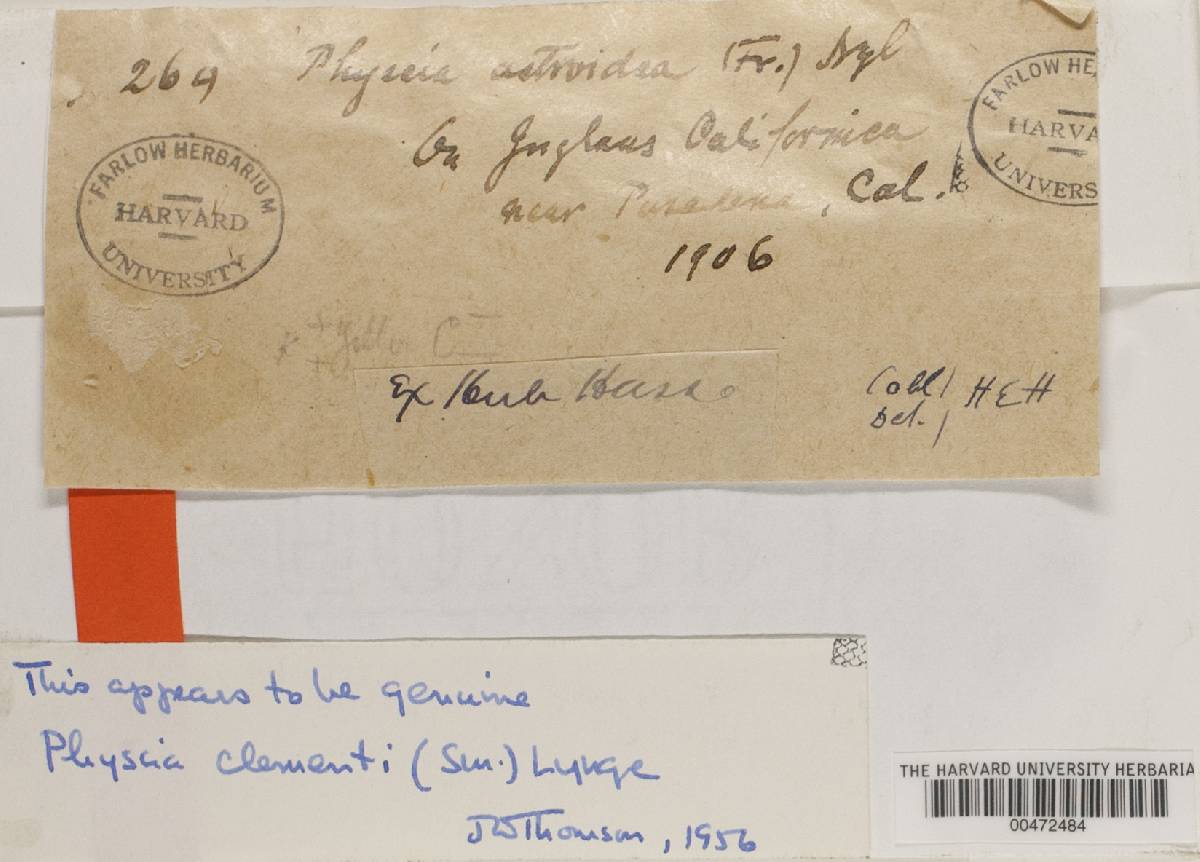 269 Physcia astroidea (Fr.) Nyl
On Juglans Californica
near Pasadena, Cal.
1906
FARLOW HERBARIUM
HARVARD
UNIVERSITY
FARLOW HE
HARVA
UNIVERS
Ex Herb Hasse
Coll
Det. HEH
This appears to be genuine
Physcia clementi (Sm.) Lynge
JWThomson, 1956
THE HARVARD UNIVERSITY HERBARIA
00472484